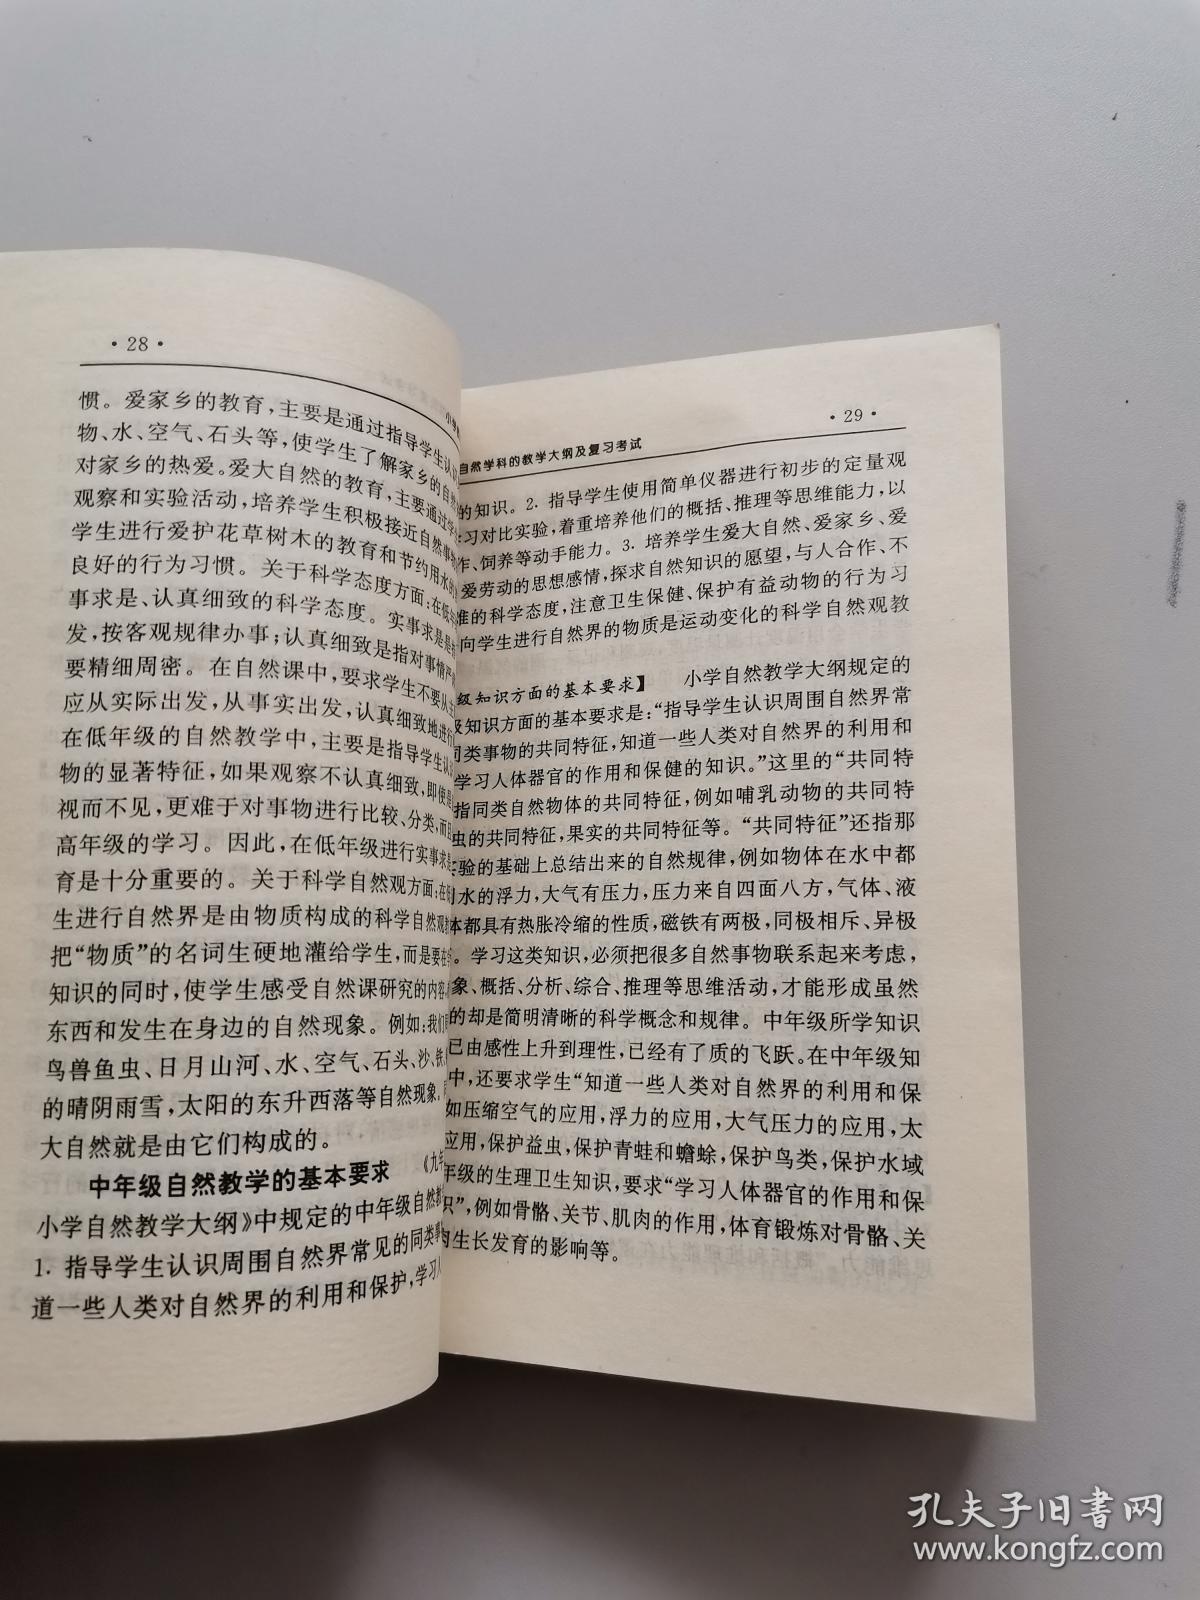 · 28 ·
小学
惯。爱家乡的教育，主要是通过指导学生认识
物、水、空气、石头等，使学生了解家乡的自然
对家乡的热爱。爱大自然的教育，主要通过学
观察和实验活动，培养学生积极接近自然事物
学生进行爱护花草树木的教育和节约用水的
良好的行为习惯。关于科学态度方面：在低年
事求是、认真细致的科学态度。实事求是是
发，按客观规律办事；认真细致是指对事情严
要精细周密。在自然课中，要求学生不要从主
应从实际出发，从事实出发，认真细致地进行
在低年级的自然教学中，主要是指导学生认识
物的显著特征，如果观察不认真细致，即使是
视而不见，更难于对事物进行比较、分类，而且
高年级的学习。因此，在低年级进行实事求是
育是十分重要的。关于科学自然观方面：在低
生进行自然界是由物质构成的科学自然观教
把“物质”的名词生硬地灌给学生，而是要在学
知识的同时，使学生感受自然课研究的内容
东西和发生在身边的自然现象。例如：我们
鸟兽鱼虫、日月山河、水、空气、石头、沙、铁
的晴阴雨雪，太阳的东升西落等自然现象。
大自然就是由它们构成的。
中年级自然教学的基本要求　《九年
小学自然教学大纲》中规定的中年级自然教
1. 指导学生认识周围自然界常见的同类事
道一些人类对自然界的利用和保护，学习人
自然学科的教学大纲及复习考试
· 29 ·
的知识。2. 指导学生使用简单仪器进行初步的定量观
习对比实验，着重培养他们的概括、推理等思维能力，以
作、饲养等动手能力。3. 培养学生爱大自然、爱家乡、爱
爱劳动的思想感情，探求自然知识的愿望，与人合作、不
准的科学态度，注意卫生保健、保护有益动物的行为习
向学生进行自然界的物质是运动变化的科学自然观教
级知识方面的基本要求】　小学自然教学大纲规定的
及知识方面的基本要求是：“指导学生认识周围自然界常
同类事物的共同特征，知道一些人类对自然界的利用和
学习人体器官的作用和保健的知识。”这里的“共同特
指同类自然物体的共同特征，例如哺乳动物的共同特
虫的共同特征，果实的共同特征等。“共同特征”还指那
验的基础上总结出来的自然规律，例如物体在水中都
水的浮力，大气有压力，压力来自四面八方，气体、液
本都具有热胀冷缩的性质，磁铁有两极，同极相斥、异极
。学习这类知识，必须把很多自然事物联系起来考虑，
象、概括、分析、综合、推理等思维活动，才能形成虽然
的却是简明清晰的科学概念和规律。中年级所学知识
已由感性上升到理性，已经有了质的飞跃。在中年级知
中，还要求学生“知道一些人类对自然界的利用和保
如压缩空气的应用，浮力的应用，大气压力的应用，太
应用，保护益虫，保护青蛙和蟾蜍，保护鸟类，保护水域
年级的生理卫生知识，要求“学习人体器官的作用和保
识”，例如骨骼、关节、肌肉的作用，体育锻炼对骨骼、关
生长发育的影响等。
孔夫子旧书网
www.kongfz.com